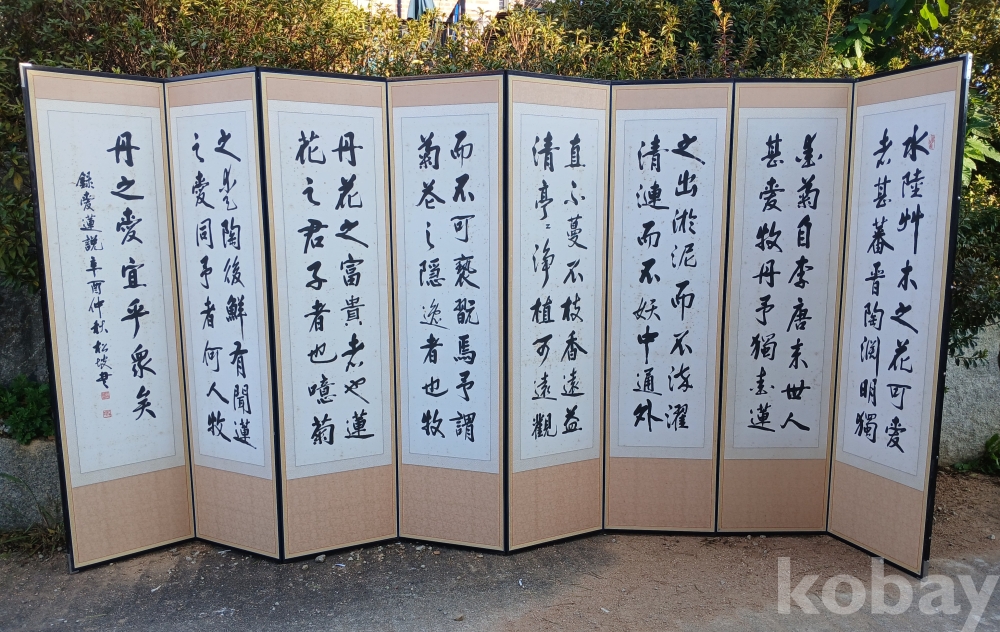 水陸艸木之花可愛
者甚蕃晋陶淵明獨
愛菊自李唐来世人
甚愛牧丹予獨愛蓮
之出淤泥而不染濯
清漣而不妖中通外
直不蔓不枝香遠益
清亭〻淨植可遠觀
而不可褻翫焉予謂
菊花之隱逸者也牧
丹花之富貴者也蓮
花之君子者也噫菊
之愛陶後鮮有聞蓮
之愛同予者何人牧
丹之愛宜乎衆矣
錄愛蓮說辛酉仲秋松坡
kobay